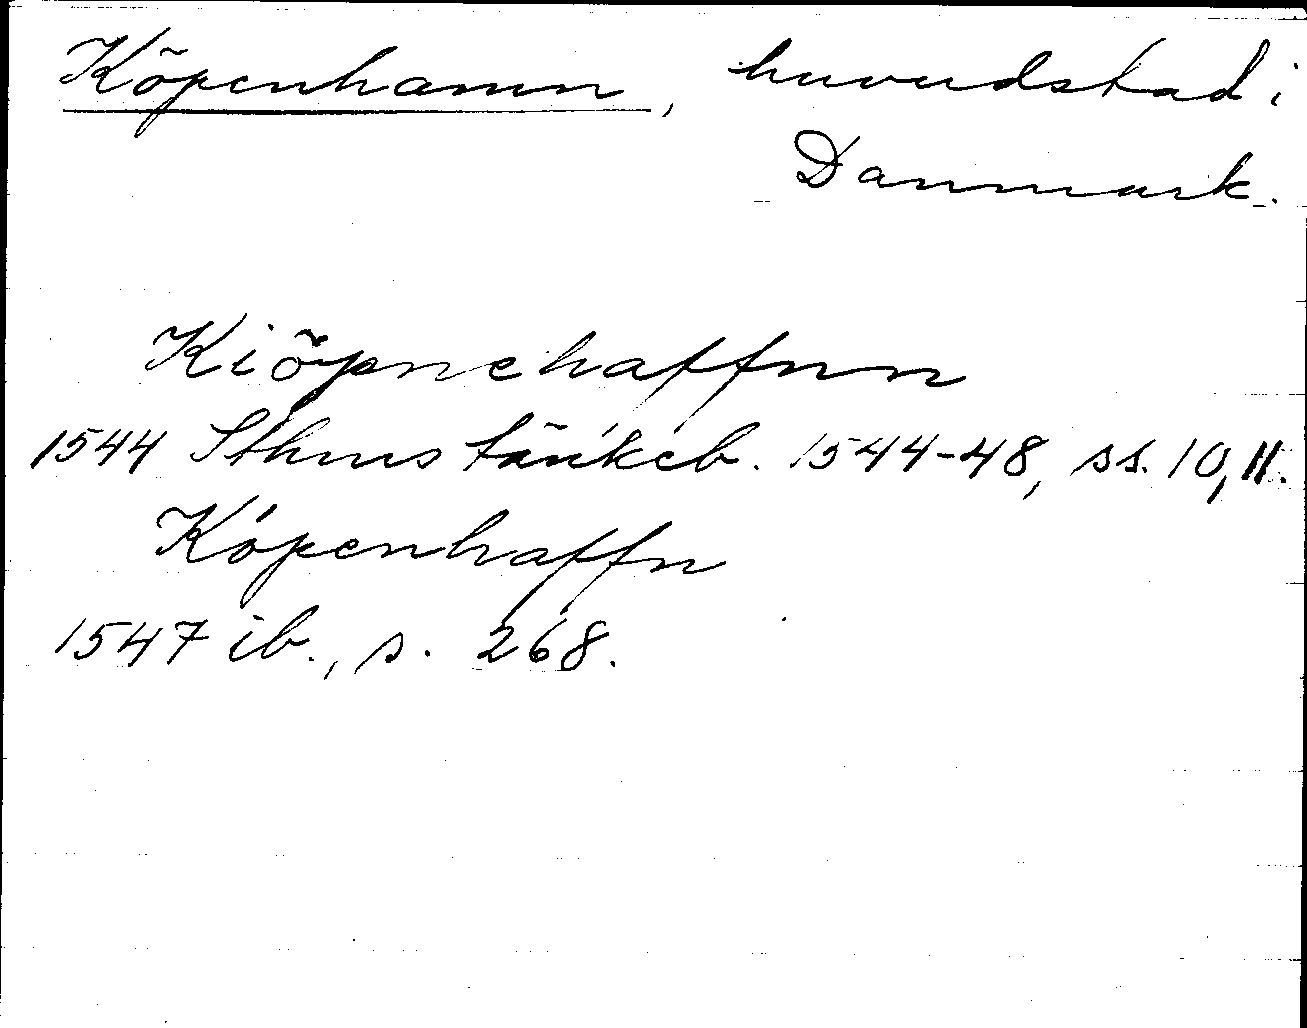 Köpenhamn, huvudstad i
Danmark.
Kiöpnehaffnn
1544 Sthms tänkeb. 1544-48, ss. 10, 11.
Köpenhaffn
1547 ib., s. 268.